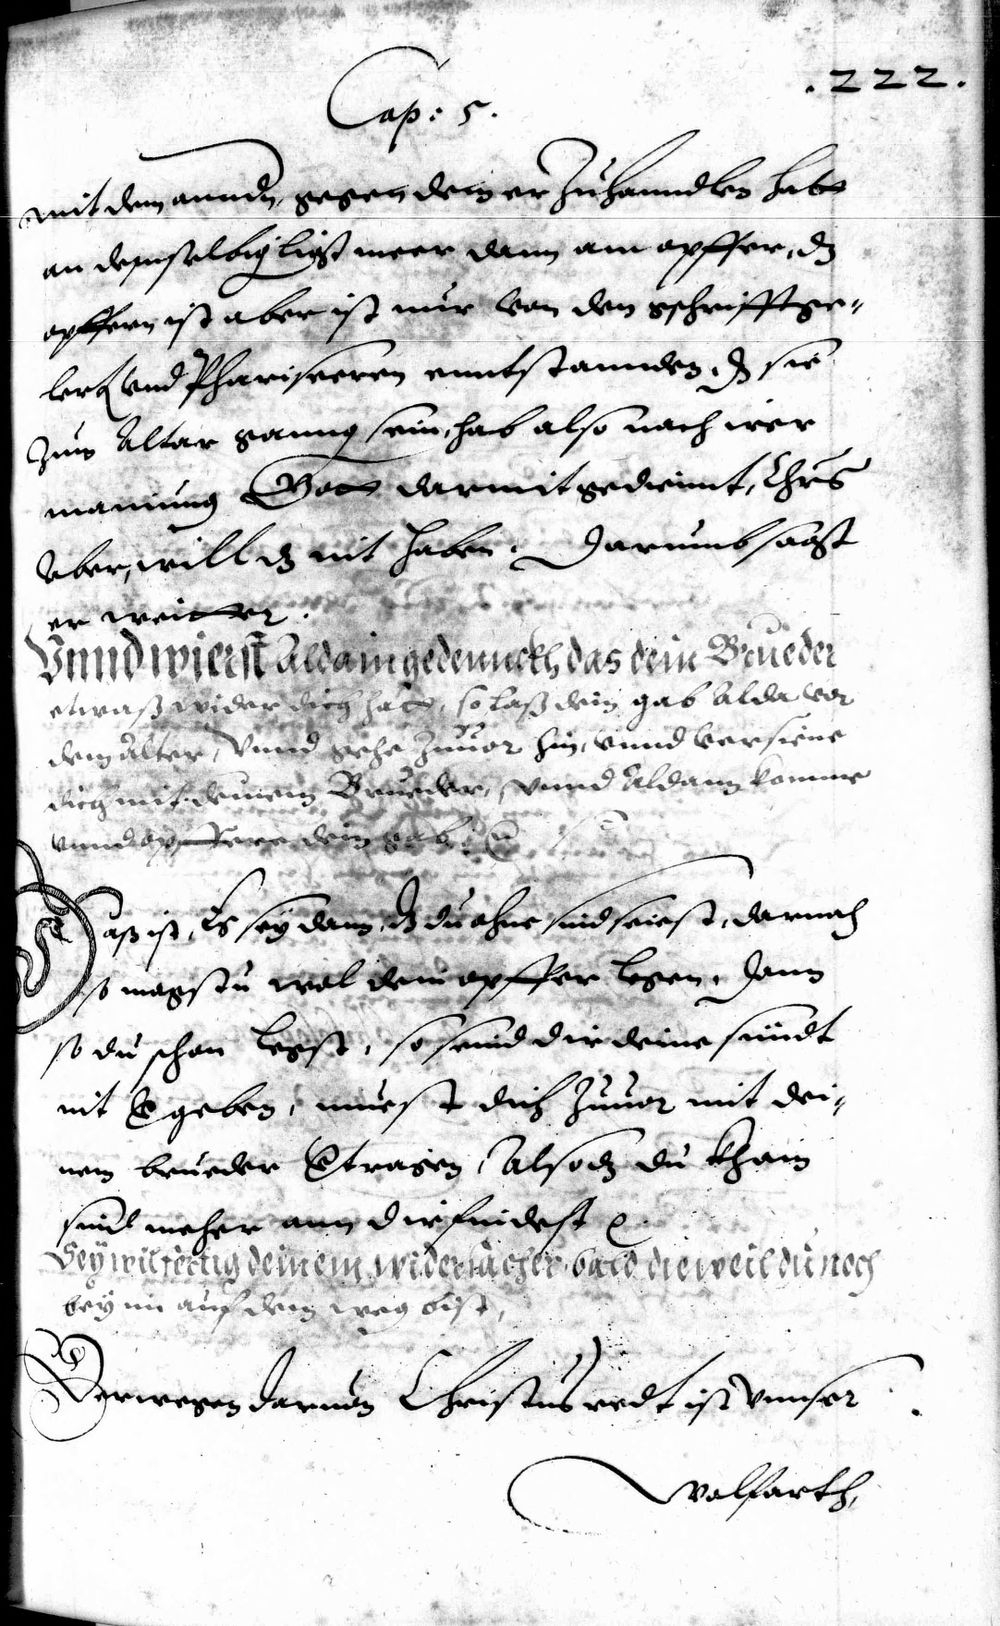 .222.
Cap: 5.
mit dem anndn, gegen dem er zuhanndlen hatt
an demselbig ligst meer dann am opffer, dz
opffern ist aber ist nur von den gschrifftge-
lertn vnd Phariseeren enntstannden, dz sie
zum Altar ganng sein, hab also nach irer
mainung Gott darmit gediennt, Chrs
Aber, will dz nit haben. Darumb sagt
er weitter.
Vnnd wierst Alda ingedennckh, das dein Brueder
etwaß wider dich hatt, so laß dein gab Alda vor
dem Alter, Vnnd gehe zuuor hin, vnnd versiene
dich mit deinem Brueder, vnnd Aldann komme
vnnd opffere dein gab.
Daß ist, Es sey dann, dz du ohne sind seiest, darnach
so magstu wol dein opffer legen, Dann
so du schon legst, so seind dir deine sündt
nit vergeben, muest dich zuuor mit dei-
nem brueder vertragen, Also dz du khain
sind meher ann dir findest
Sey wilfertig deinem widersacher, bald dieweil du noch
bey im auf dem weg bist,
Der wegen daruon Christus redt ist vnnser
walfarth,